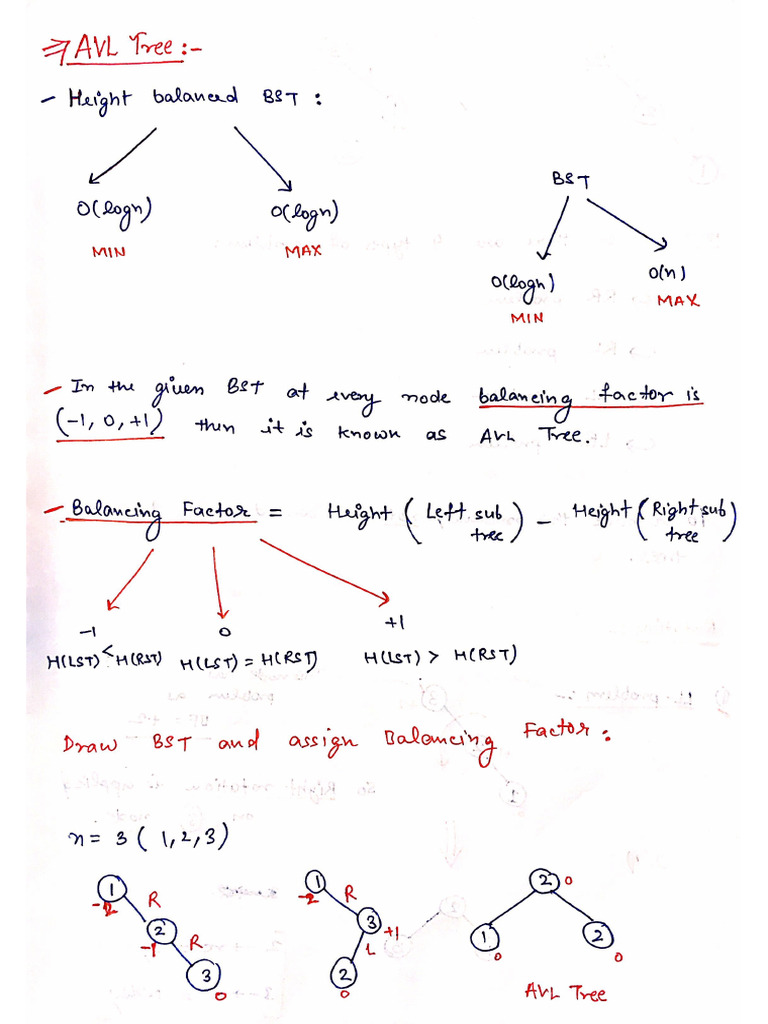 ⇒ AVL Tree :-
- Height balanced BST :
BST
O(logn) O(logn)
MIN MAX
O(logn) O(n)
MIN MAX
- In the given BST at every node balancing factor is
(-1, 0, +1) then it is known as AVL Tree.
- Balancing Factor = Height (Left sub tree) - Height (Right sub tree)
-1 0 +1
H(LST) < H(RST) H(LST) = H(RST) H(LST) > H(RST)
Draw BST and assign Balancing Factor :
n = 3 ( 1, 2, 3 )
1 -2 R 2 -1 R 3 0
1 -2 R 3 +1 L 2 0
2 0 1 0 2 0
AVL Tree